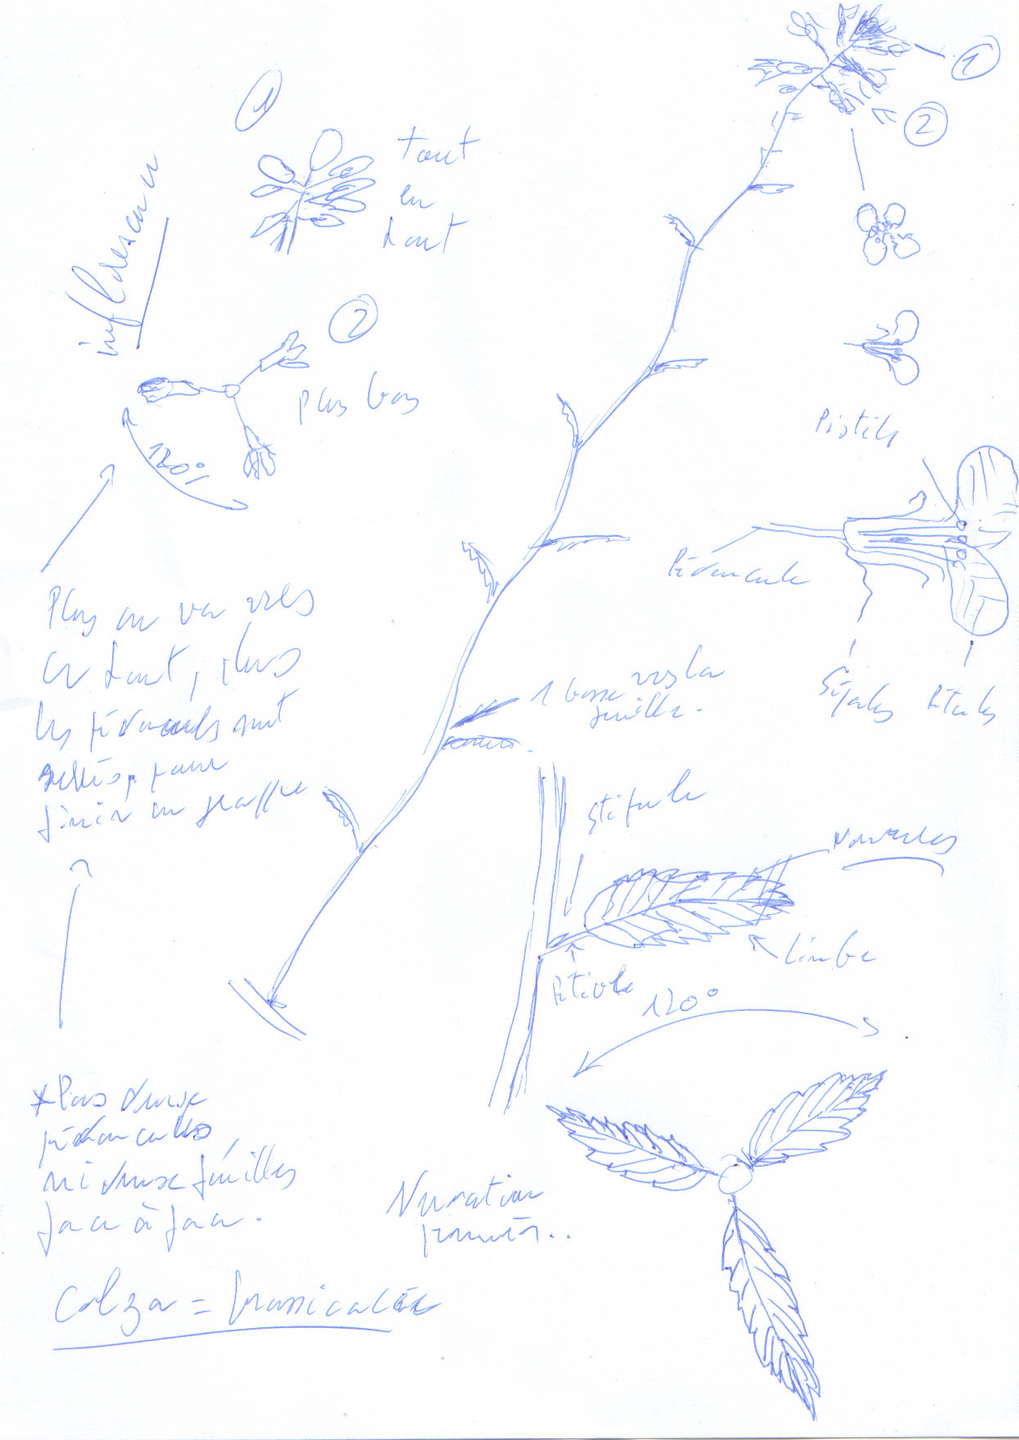 1
2
1
tout
en
haut
inflorescence
2
plus bas
120°
Pistils
Pédoncule
Sépales
Pétales
Plus on va vers
en haut, plus
les pédoncules sont
pour
finir en grappe
1 bosse vers la
feuille.
Stipule
Nervures
Limbe
Pétiole
120°
* Pas deux
pédoncules
ni deux feuilles
face à face.
Nervation
pennée..
Colza = brassicacée